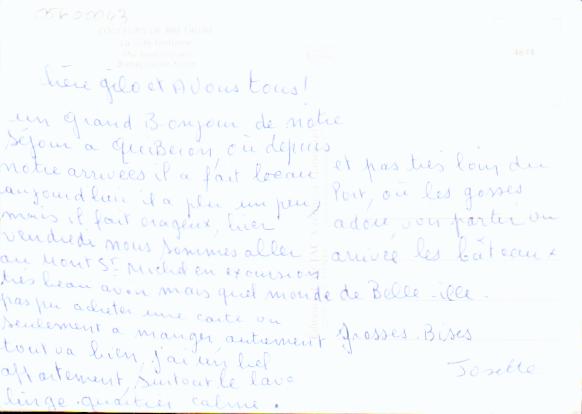 Chère gilo et A vous tous!
un Grand Bonjour de notre
séjour a QuiBeron, où depuis
notre arrivées il a fait beau
aujourd'hui il a plu un peu,
mais il fait orageux, hier
vendredi nous sommes aller
au Mont St Michel en excursion
très beau avon mais quel monde
pas pu acheter une carte ou
seulement a manger, autrement
tout va bien, j'ai un bel
appartement, surtout le lave
linge. quartier calme.
et pas très loin du
Port, où les gosses
adore, voir partir ou
arrivée les bâteaux
de Belle-ille.
Grosses. Bises
Josette